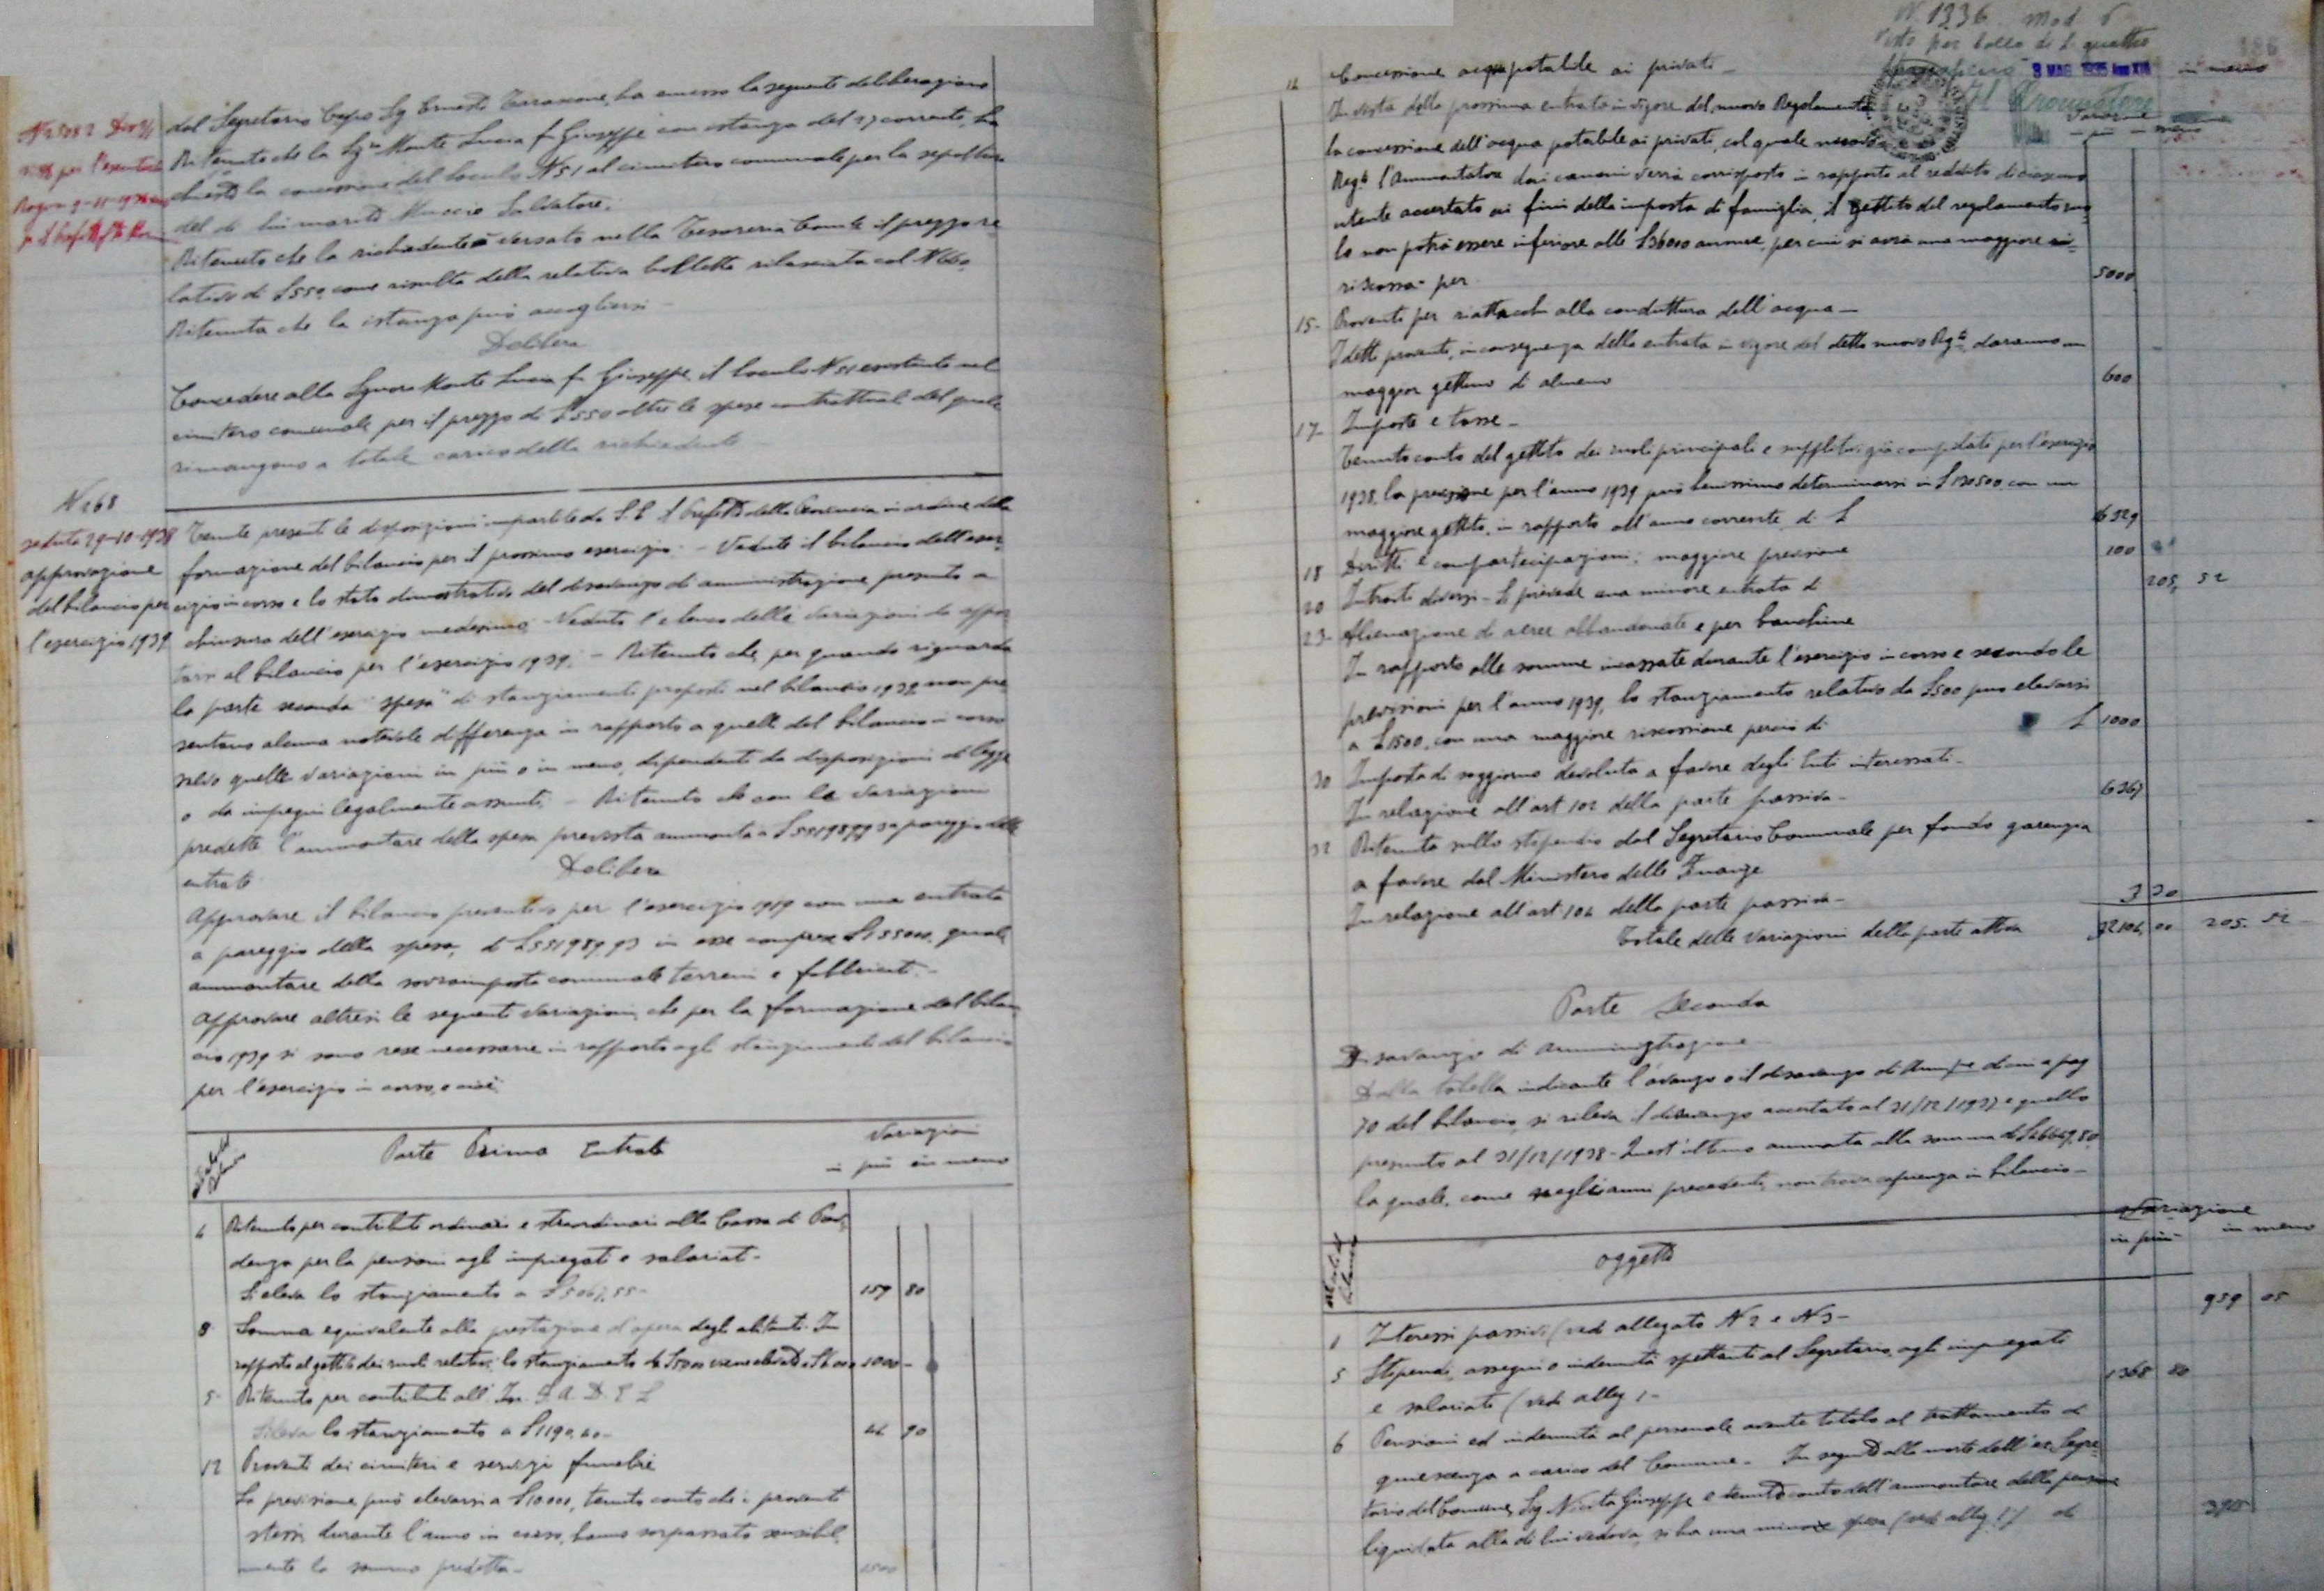 del Segretario Capo Sig. Ernesto ha emesso la seguente deliberazione
Ritenuto che la Sig.ra Monte Lucia fu Giuseppe con istanza del 27 corrente, ha
chiesto la concessione del loculo N 51 al cimitero comunale per la sepoltura
del di lui marito Salvatore;
Ritenuto che la richiedente à versato nella Tesoreria Com.le il prezzo re
lativo di L 550, come risulta della relativa bolletta rilasciata col N 660.
Ritenuta che la istanza può accogliersi
Delibera
Concedere alla Signora Monte Lucia fu Giuseppe il loculo N 51 esistente nel
cimitero comunale per il prezzo di L 550 oltre le spese contrattuali del quale
rimangono a totale carico della richiedente
N 268
seduta 29-10-1938
approvazione
del bilancio per
l'esercizio 1939
Tenute presenti le disposizioni impartite da S.E. il Prefetto della Provincia in ordine della
formazione del bilancio per il prossimo esercizio. - Veduto il bilancio dell'eser
cizio in corso e lo stato dimostrativo del disavanzo di amministrazione presunto a
chiusura dell'esercizio medesimo; - Veduto l'elenco delle variazioni da appor
tarsi al bilancio per l'esercizio 1939; - Ritenuto che, per quando riguarda
la parte seconda "spesa" di stanziamenti proposti nel bilancio 1939 non pre
sentano alcuna notevole differenza in rapporto a quelli del bilancio in corso
salvo quelle variazioni in più o in meno, dipendenti da disposizioni di legge
o da impegni legalmente assunti; - Ritenuto che con le variazioni
predette l'ammontare della spesa prevista ammonta a L a pareggio delle
entrate
Delibera
Approvare il bilancio preventivo per l'esercizio 1939 con una entrata
a pareggio della spesa, di L 551989,93 in esse comprese L 155000, quale
ammontare della sovraimposta comunale terreni e fabbricati. -
Approvare altresì le seguenti variazioni, che per la formazione del bilan
cio 1939 si sono rese necessarie in rapporto agli stanziamenti del bilancio
per l'esercizio in corso, e cioè:
Parte Prima Entrate
Variazioni
in più in meno
4 Ritenuto per contributi ordinari e straordinari alla Cassa di Previ
denza per la pensioni agli impiegati e salariati -
Si eleva lo stanziamento a L 5067,55 - 157 80
8 Somma equivalente alla prestazione d'opera degli abitanti. In
rapporto al gettito dei ruoli relativi, lo stanziamento da L 5000 viene elevato a L 6000 1000 -
9- Ritenuto per contributi all' I. N. F. A. D. E. L.
Si eleva lo stanziamento a L 1190,40 - 46 90
12 Proventi dei cimiteri e servizi funebri
La previsione può elevarsi a L 10000, tenuto conto che i proventi
stessi durante l'anno in corso, hanno sorpassato sensibil
mente la somma predetta - 1500
N 1336 Mod 6
Visto per bollo di L quattro
9 MAG. 1935 Anno XIII
Il Procuratore
Variazione
in più in meno
14 Concessione acqua potabile ai privati -
In vista della prossima entrata in vigore del nuovo Regolamento
la concessione dell'acqua potabile ai privati, col quale
Reg.to l'ammontatore dei canoni verrà corrisposto in rapporto al reddito di ciascuno
utente accertato ai fini della imposta di famiglia, il gettito del regolamento
lo non potrà essere inferiore alle L 36000 annue, per cui si avrà una maggiore
riscossa per 5000
15- Proventi per riattacchi alla conduttura dell'acqua -
I detti proventi, in conseguenza della entrata in vigore del detto nuovo Reg.to, daranno un
maggior gettito di almeno 600
17- Imposte e tasse -
Tenuto conto del gettito dei ruoli principali e suppletivi già compilati per l'esercizio
1938, la previsione per l'anno 1939 può benissimo determinarsi in L 130500 con un
maggiore gettito, in rapporto all'anno corrente di L 16329
18 Diritti e compartecipazioni: maggiore previsione 100
20 Introiti diversi - Si prevede una minore entrata di 205, 52
23- Alienazione di aree abbandonate e per banchine
In rapporto alle somme incassate durante l'esercizio in corso e secondo le
previsioni per l'anno 1939, lo stanziamento relativo da L 500 può elevarsi
a L 1500, con una maggiore riscossione perciò di L 1000
30 Imposta di soggiorno devoluta a favore degli Enti interessati -
In relazione all'art 102 della parte passiva - 6367
32 Ritenuta sullo stipendio dal Segretario Comunale per fondo garenzia
a favore dal Ministero delle Finanze
In relazione all'art 104 della parte passiva - 3 30
Totale delle variazioni della parte attiva 32104, 00 205. 52
Parte Seconda
Disavanzo di amministrazione
Dalla tabella indicante l'avanzo o il disavanzo di Amm/ne di cui a pag
70 del bilancio, si rileva il disavanzo accertato al 31/12/1937 e quello
presunto al 31/12/1938 - Quest'ultimo ammonta alla somma di L
la quale, come negli anni precedenti, non trova capienza in bilancio -
Oggetto
Variazione
in più in meno
1 Interessi passivi (vedi allegato N 2 e N 3 - 959 05
5 Stipendi, assegni o indennità spettanti al Segretario, agli impiegati
e salariati (vedi alleg 1 - 1368 80
6 Pensioni ed indennità al personale avente titolo al trattamento di
quiescenza a carico del Comune - In seguito alla morte dell'ex Segre
tario del Comune, Sig. Giuseppe e tenuto conto dell'ammontare della pensione
liquidata alla di lui vedova, si ha una minore spesa (vedi alleg. 1) di